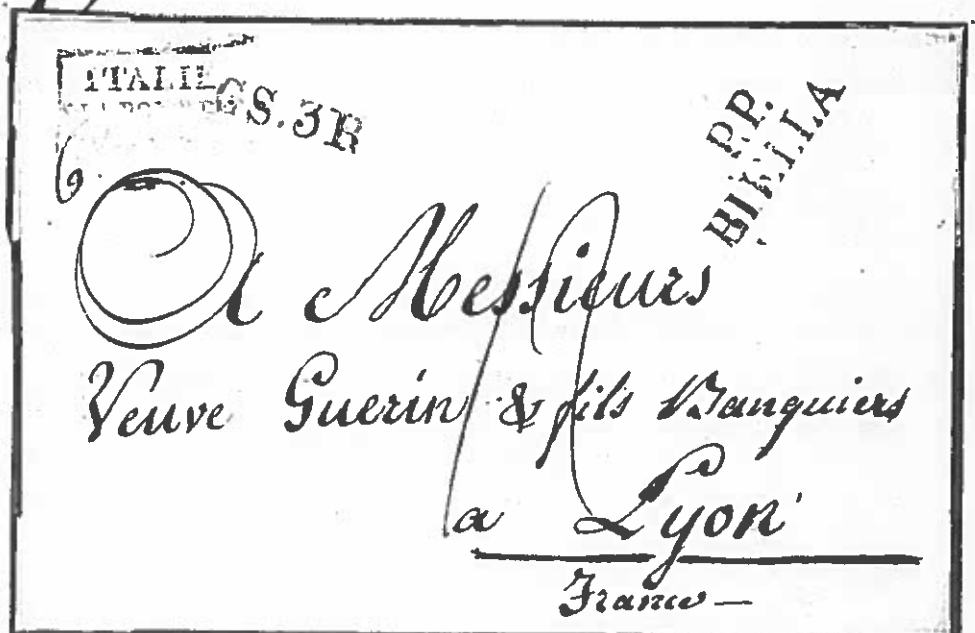 ITALIE
CS.3R
P.P.
BIELLA
A Messieurs
Veuve Guerin & fils Banquiers
a Lyon
France —